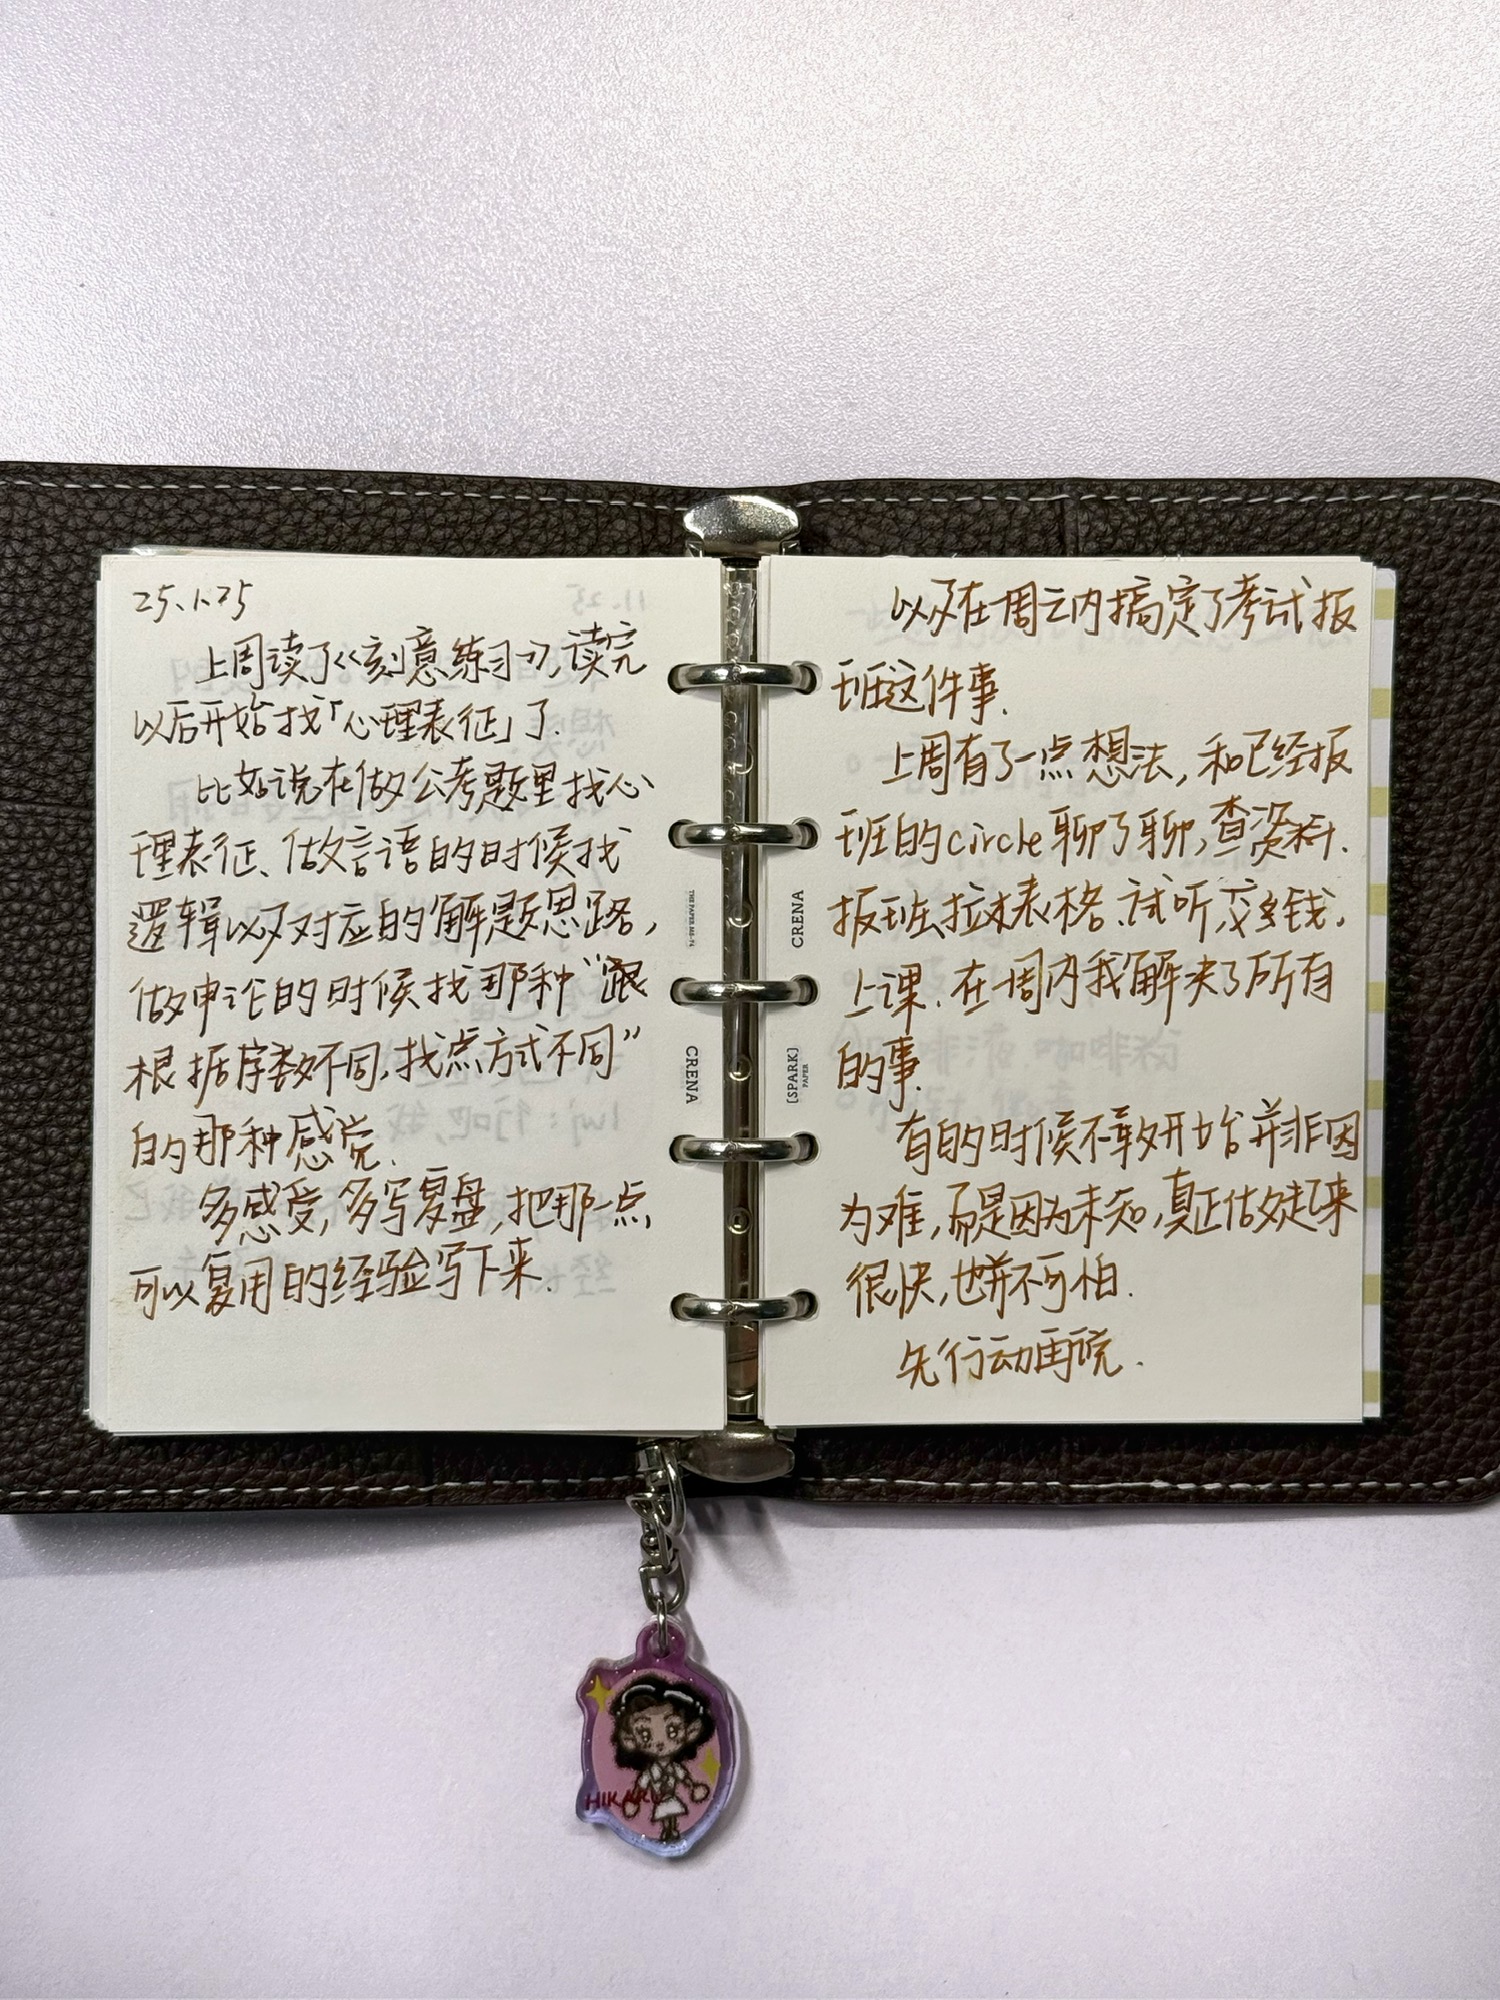 25.1.25
上周读了《刻意练习》,读完
以后开始找「心理表征」了.
比如说在做公考题里找心
理表征、做言语的时候找
逻辑以及对应的解题思路,
做申论的时候找那种“跟
根据序数不同,找点方式不同”
的那种感觉.
多感受,多写复盘,把那一点
可以复用的经验写下来.
以及在一周之内搞定了考试报
班这件事.
上周有了一点想法,和已经报
班的circle聊了聊,查资料.
报班、拉表格、试听,交钱,
上课.在一周内我解决了所有
的事.
有的时候不敢开始并非因
为难,而是因为未知,真正做起来
很快,也并不可怕.
先行动再说.
THE PAPER M5-P4
CRENA
CRENA
[SPARK]
PAPER
HIKARU